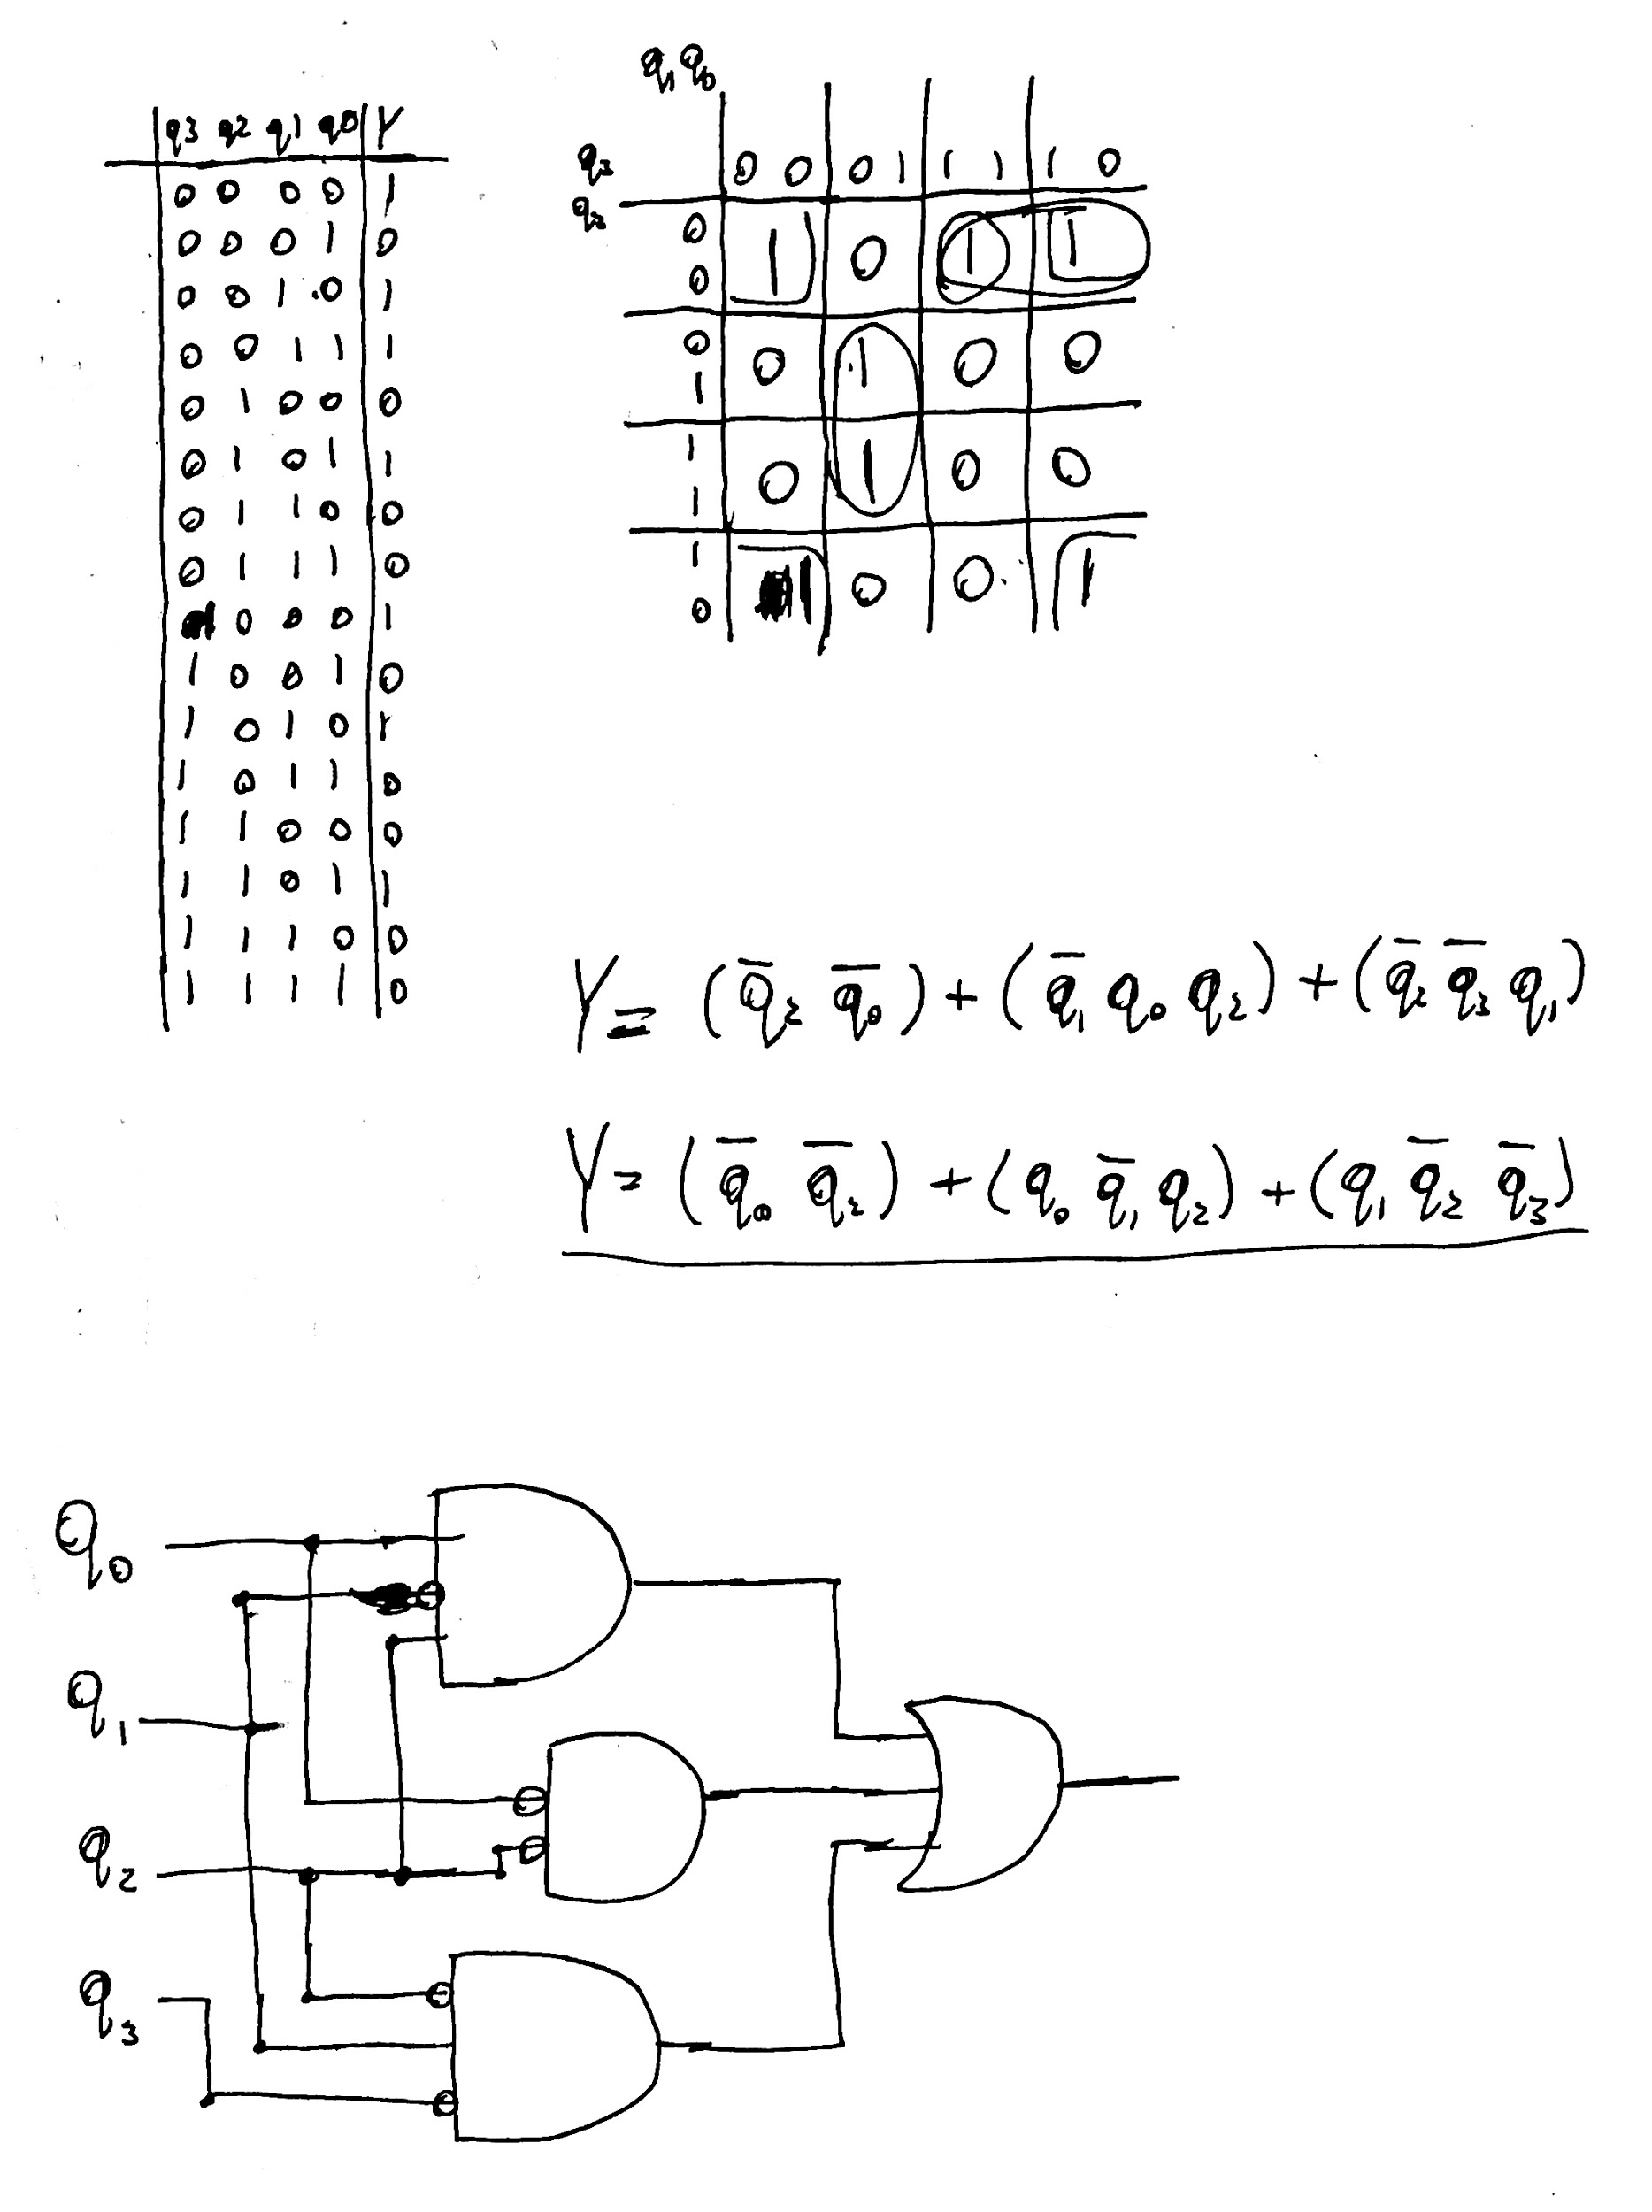 q3 q2 q1 q0 Y
0 0 0 0 1
0 0 0 1 0
0 0 1 0 1
0 0 1 1 1
0 1 0 0 0
0 1 0 1 1
0 1 1 0 0
0 1 1 1 0
1 0 0 0 1
1 0 0 1 0
1 0 1 0 1
1 0 1 1 0
1 1 0 0 0
1 1 0 1 1
1 1 1 0 0
1 1 1 1 0
q₁ q₀
q₃ 00 01 11 10
q₂
00 1 0 1 1
01 0 1 0 0
11 0 1 0 0
10 1 0 0 1
Y = (q̅₂ q̅₀) + (q̅₁ q₀ q₂) + (q̅₂ q̅₃ q₁)
Y = (q̅₀ q̅₂) + (q₀ q̅₁ q₂) + (q₁ q̅₂ q̅₃)
q₀
q₁
q₂
q₃